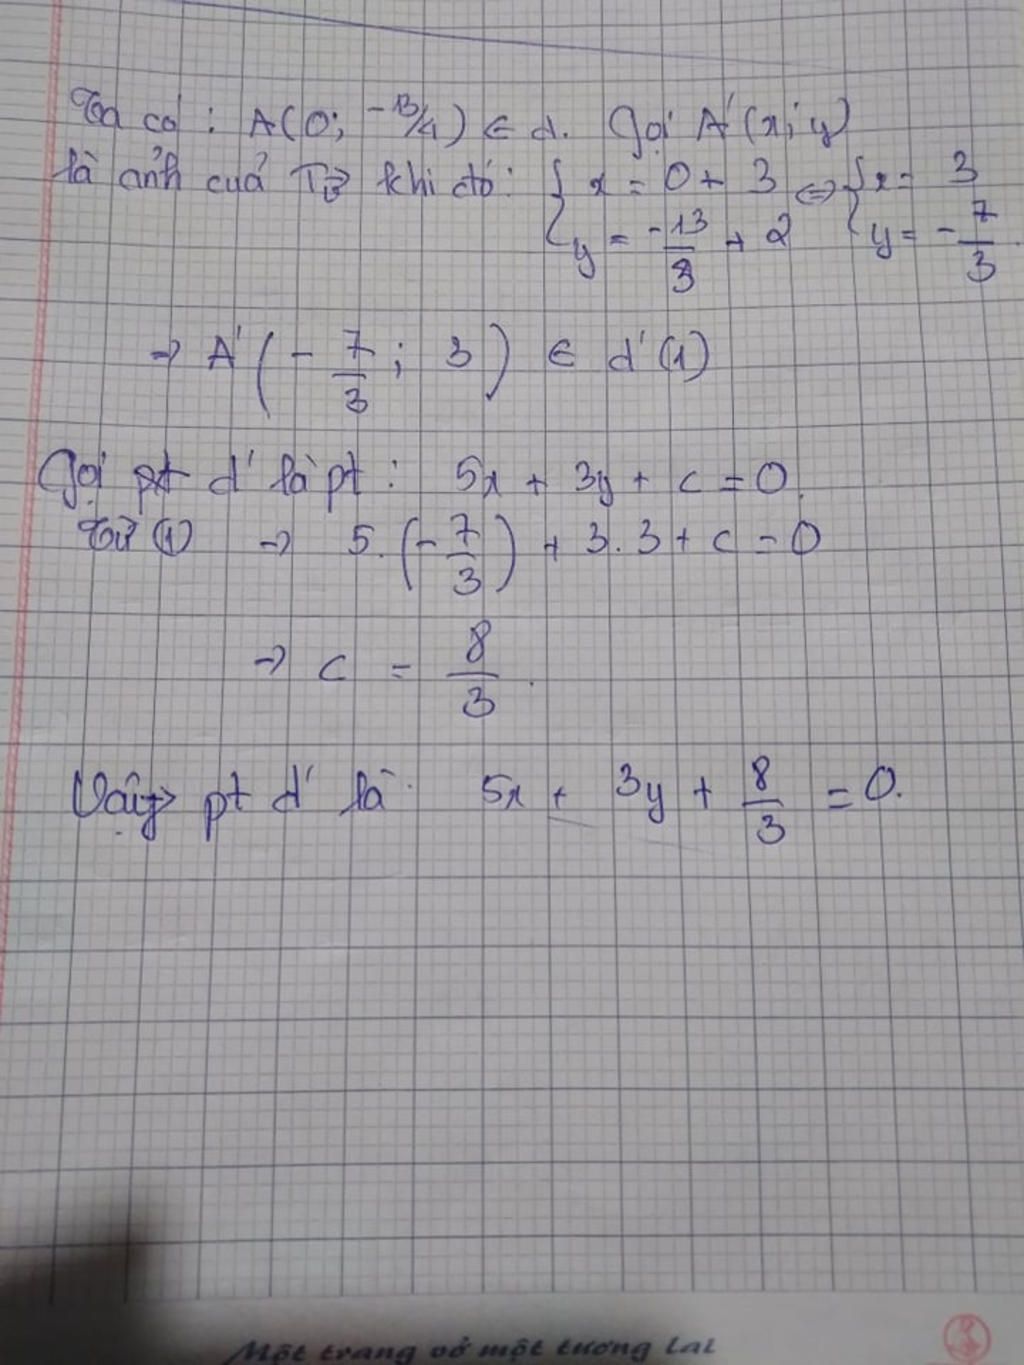 Ta có : A(0; -13/4) ∈ d. Gọi A'(x; y)
là ảnh của Tv⃗ khi đó: { x = 0 + 3 ⇔ { x = 3
{ y = -13/3 + 2 { y = -7/3.
→ A'(-7/3; 3) ∈ d'(1)
Gọi pt d' là pt: 5x + 3y + c = 0.
Từ (1) → 5.(-7/3) + 3.3 + c = 0
→ c = 8/3.
Vậy pt d' là: 5x + 3y + 8/3 = 0.
Một trang vở một tương lai